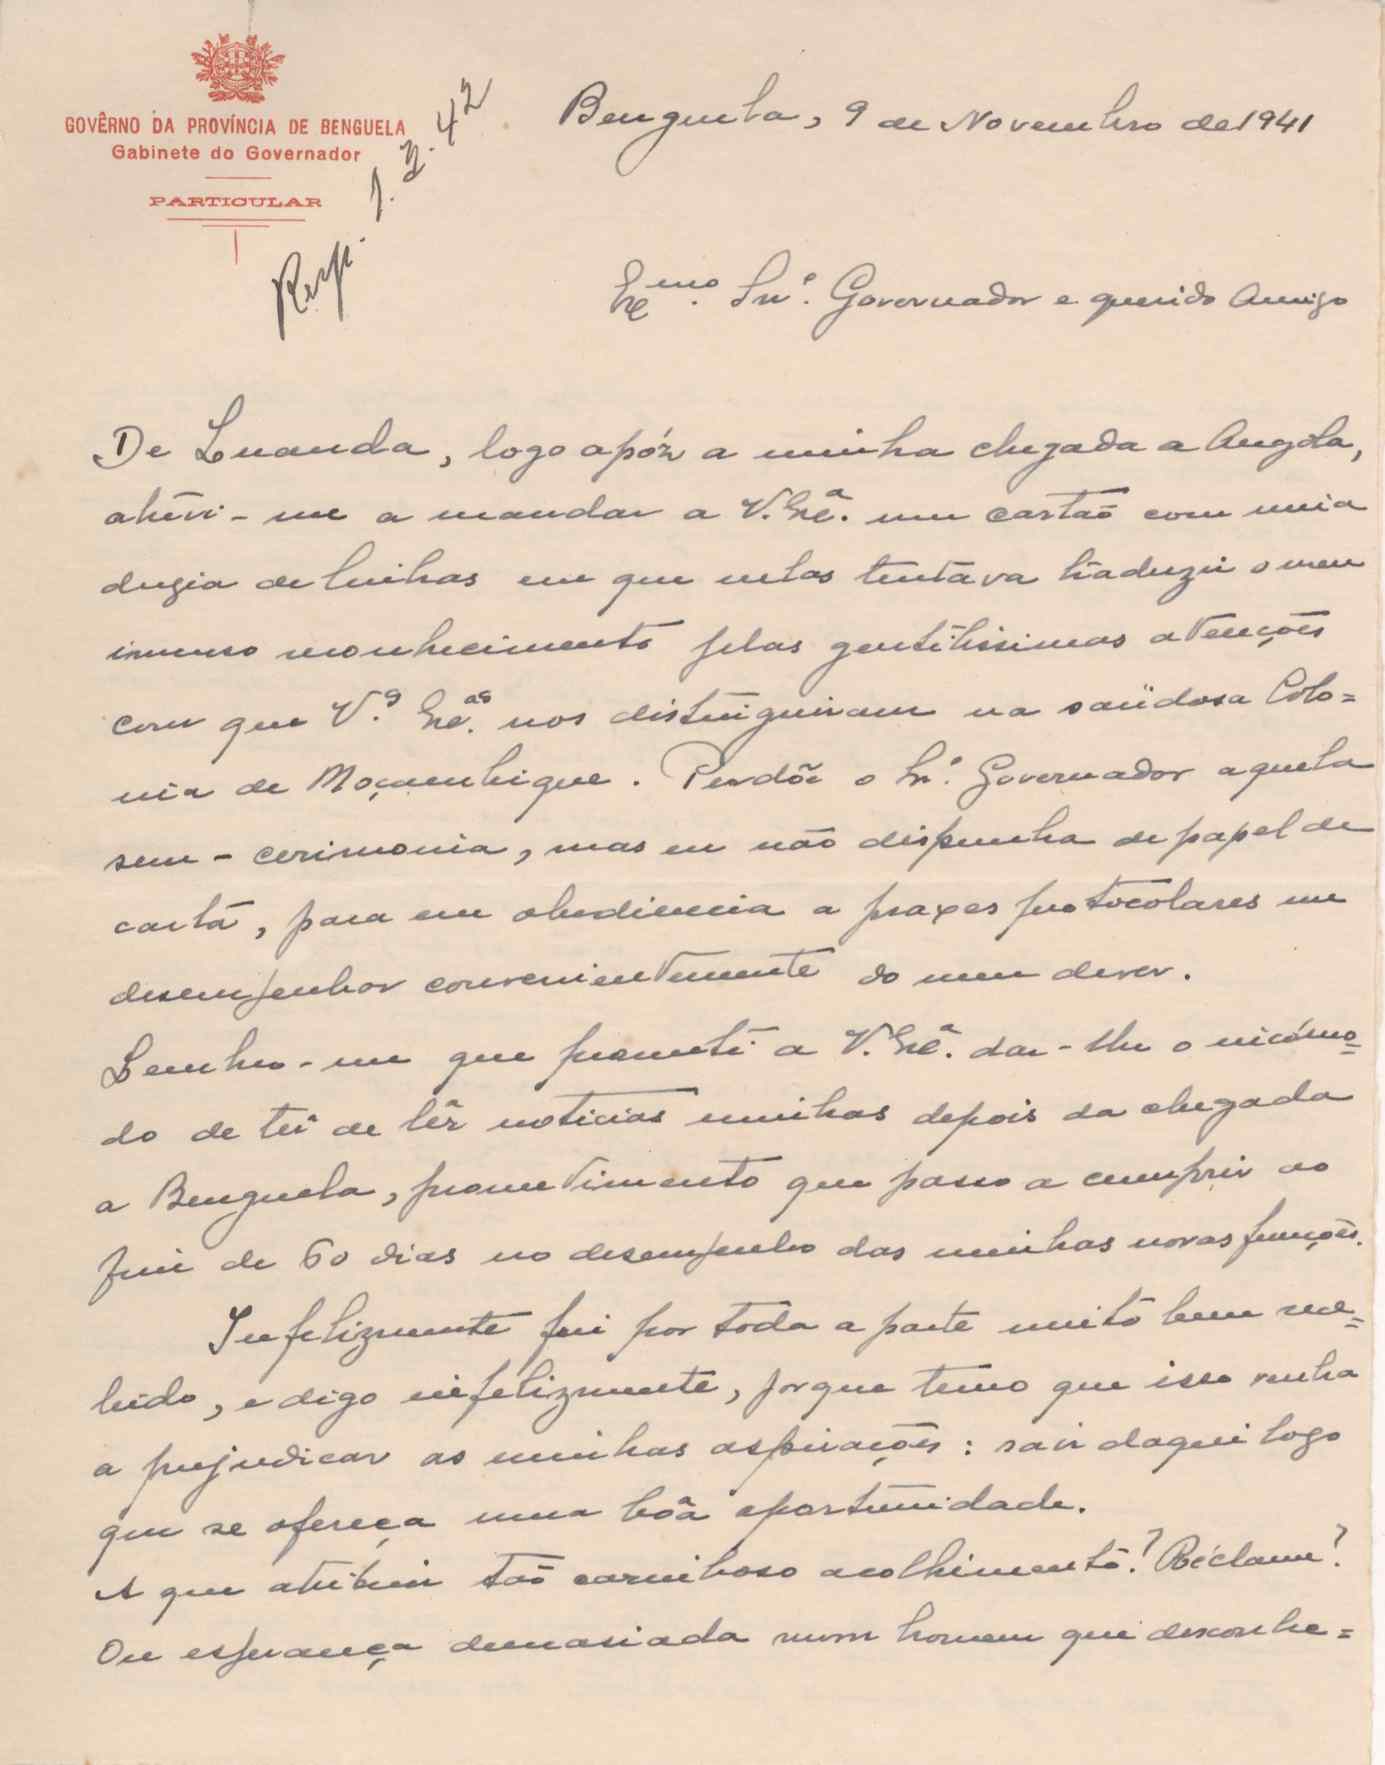 GOVÊRNO DA PROVÍNCIA DE BENGUELA
Gabinete do Governador
PARTICULAR
Resp. 1.3.42
Benguela, 9 de Novembro de 1941
Exᵐᵒ. Snʳ. Governador e querido Amigo
De Luanda, logo apóz a minha chegada a Angola,
atrevi-me a mandar a V. Exª. um cartão com meia
duzia de linhas em que nelas tentava traduzir o meu
imenso reconhecimento pelas gentilissimas atenções
com que V.ˢ Exᵃˢ. nos distinguiram na saüdosa Colo=
nia de Moçambique. Perdõe o Snʳ. Governador aquela
sem-cerimonia, mas eu não dispunha de papel de
carta, para em obediencia a praxes protocolares me
desempenhar convenientemente do meu dever.
Lembro-me que prometi a V. Exª. dar-lhe o incómo=
do de ter de lêr noticias minhas depois da chegada
a Benguela, prometimento que passo a cumprir ao
fim de 60 dias no desempenho das minhas novas funções.
Infelizmente fui por toda a parte muito bem rece=
bido, e digo infelizmente, porque temo que isso venha
a prejudicar as minhas aspirações: sair daqui logo
que se ofereça uma bôa oportunidade.
A que atribuir tão carinhoso acolhimento? Réclame?
Ou esperança demasiada num homem que desconhe=